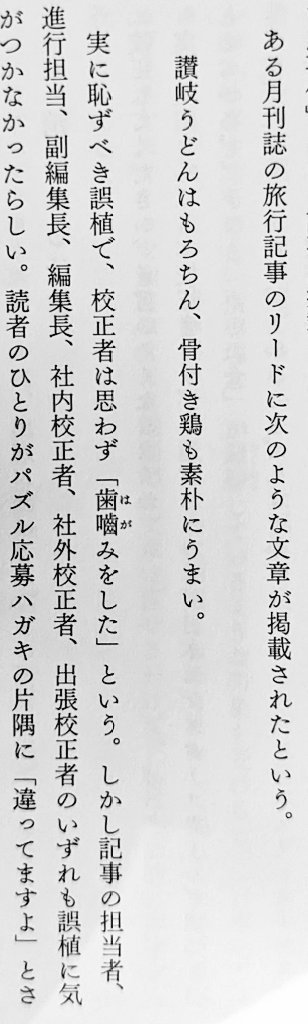 ある月刊誌の旅行記事のリードに次のような文章が掲載されたという。
讃岐うどんはもろちん、骨付き鶏も素朴にうまい。
実に恥ずべき誤植で、校正者は思わず「歯嚙みをした」という。しかし記事の担当者、
進行担当、副編集長、編集長、社内校正者、社外校正者、出張校正者のいずれも誤植に気
がつかなかったらしい。読者のひとりがパズル応募ハガキの片隅に「違ってますよ」とさ